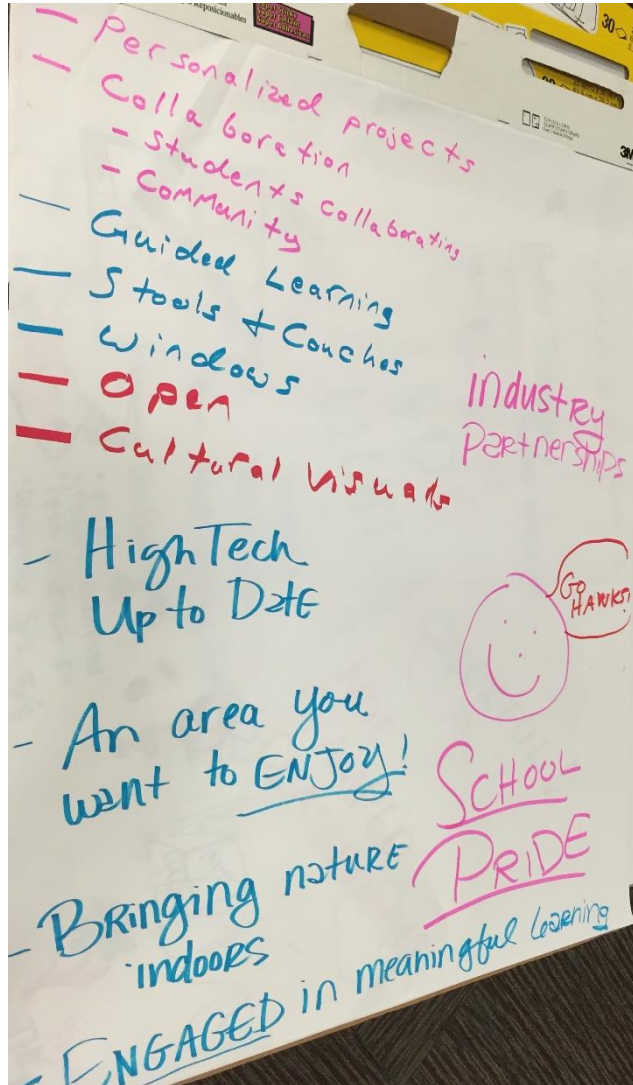 Reposicionables
30
3M
- Personalized projects
- Collaboration
- Students collaborating
- Community
- Guided Learning
- Stools + Couches
- Windows
- Open
- Cultural Visuals
industry
Partnerships
- High Tech
Up to Date
Go
HAWKS!
- An area you
want to ENJOY!
SCHOOL
PRIDE
- Bringing nature
indoors
- ENGAGED in meaningful learning